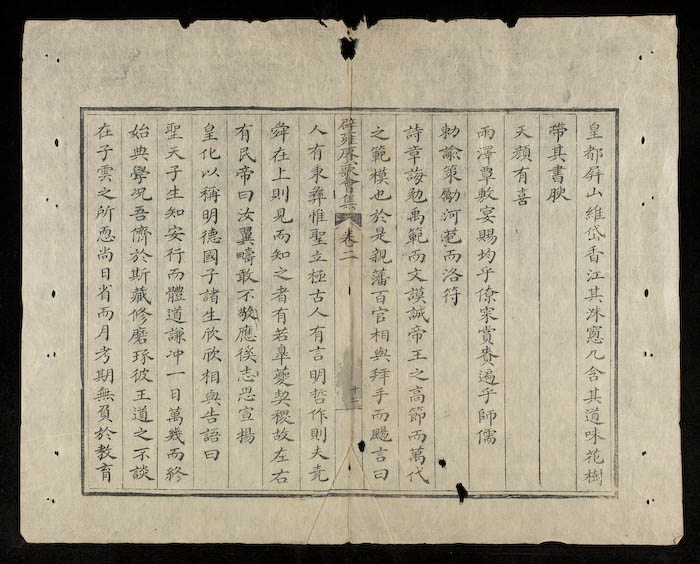 皇都屏山維岱香江其洙窻几含其道味花樹
帶其書腴
天顏有喜
雨澤覃敷宴賜均乎僚寀賞賚遍乎師儒
勅諭策勵河苞而洛符
詩章誨勉禹範而文謨誠帝王之高節而萬代
之範模也於是親藩百官相與拜手而颺言曰
辟雍賡歌會集
卷二
十二
人有秉彝惟聖立極古人有言明哲作則夫堯
舜在上則見而知之者有若臯夔契稷故左右
有民帝曰汝翼疇敢不敬應徯志思宣揚
皇化以稱明德國子諸生欣欣相與告語曰
聖天子生知安行而體道謙冲一日萬幾而終
始典學况吾儕於斯藏修磨琢彼王道之不談
在子雲之所恧尚日省而月考期無負於教育